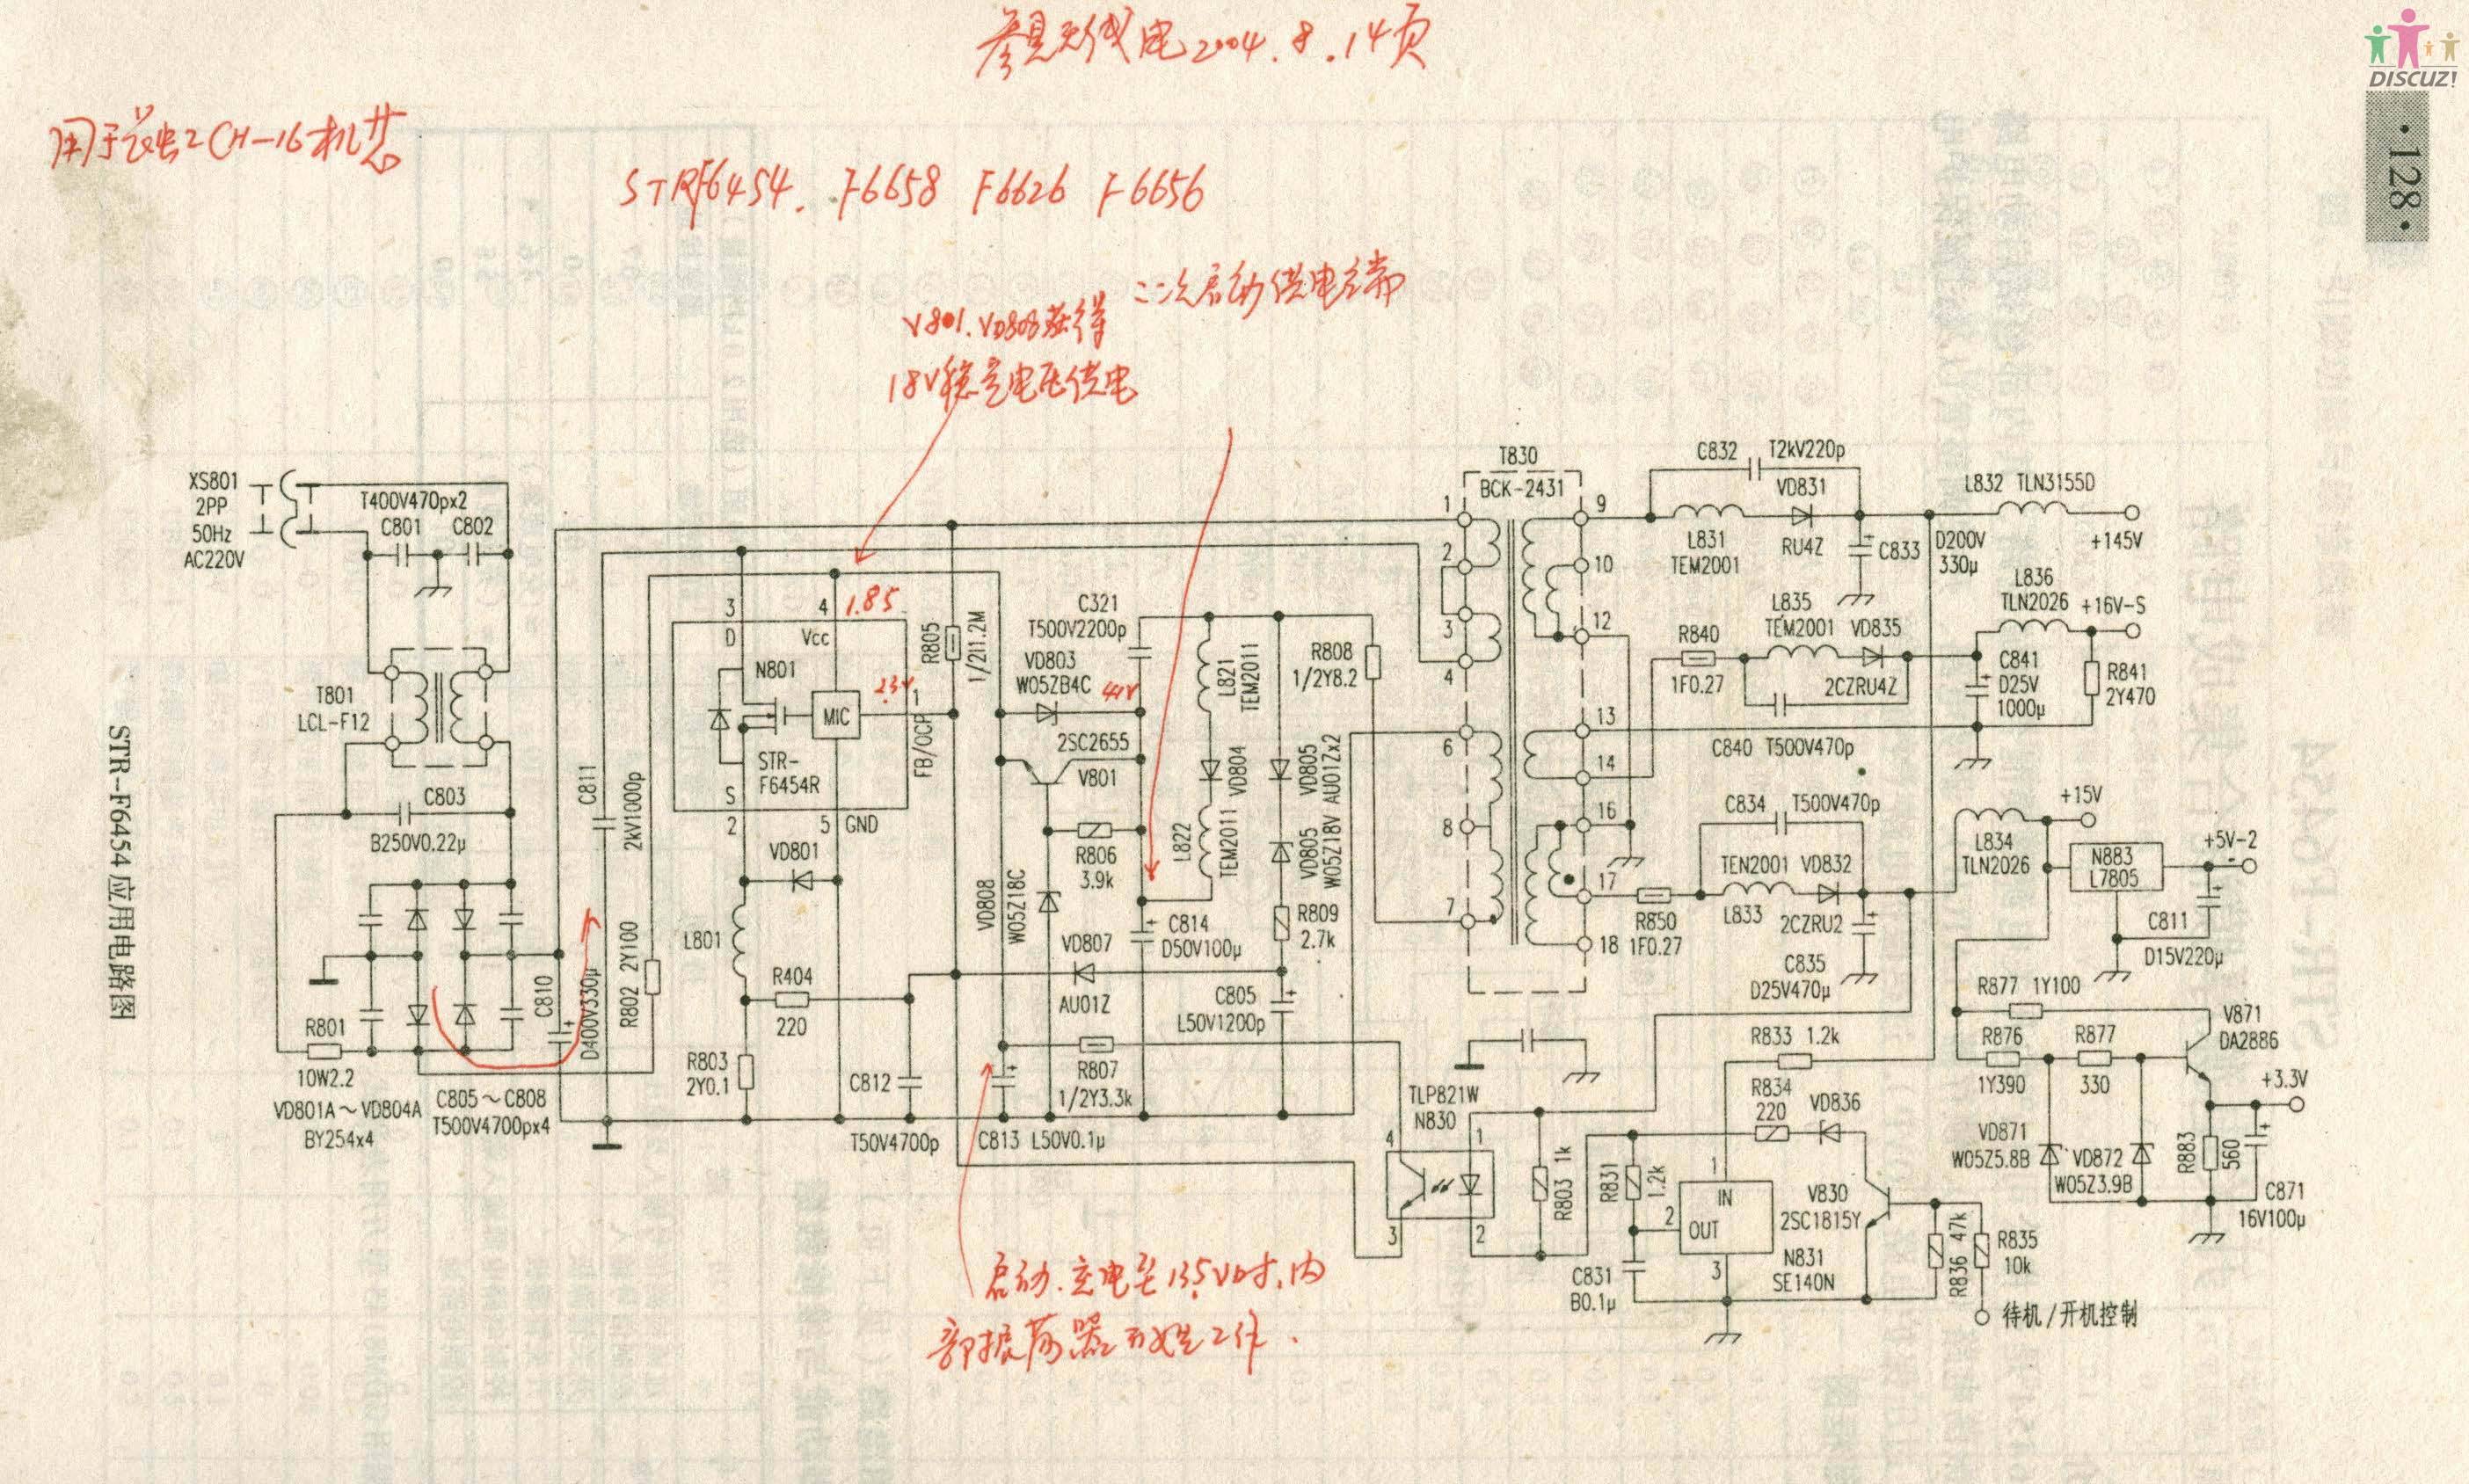 参见无线电2004.8.14页
DISCUZ!
·128·
用于长虹CH-16机芯
STRF6454. F6658 F6626 F6656
二次启动供电端
V801.VD808获得
18V稳定电压供电
XS801
2PP
50Hz
AC220V
T400V470px2
C801
C802
T801
LCL-F12
C803
B250V0.22μ
R801
10W2.2
VD801A～VD804A
BY254x4
C805～C808
T500V4700px4
C810
D400V330μ
C811
2kV1000p
R802 2Y100
STR-F6454应用电路图
3
D
4
Vcc
1.85
N801
MIC
STR-
F6454R
S
2
5
GND
1
FB/OCP
R805
1/2I1.2M
VD801
L801
R404
220
R803
2Y0.1
C812
T50V4700p
C321
T500V2200p
VD803
W05ZB4C
2SC2655
V801
R806
3.9k
VD808
W05Z18C
VD807
AU01Z
R807
1/2Y3.3k
C813
L50V0.1μ
C814
D50V100μ
L821
TEM2011
VD804
L822
TEM2011
VD805
AU01Zx2
VD805
W05Z18V
R808
1/2Y8.2
R809
2.7k
C805
L50V1200p
T830
BCK-2431
1
2
3
4
6
8
7
9
10
12
13
14
16
17
18
C832
T2kV220p
VD831
RU4Z
L831
TEM2001
C833
D200V
330μ
L832 TLN3155D
+145V
L836
TLN2026
+16V-S
R840
1F0.27
L835
TEM2001
VD835
2CZRU4Z
C840 T500V470p
C841
D25V
1000μ
R841
2Y470
C834
T500V470p
R850
1F0.27
TEN2001
L833
VD832
2CZRU2
C835
D25V470μ
L834
TLN2026
+15V
N883
L7805
+5V-2
C811
D15V220μ
R877 1Y100
V871
DA2886
R876
1Y390
R877
330
+3.3V
VD871
W05Z5.8B
VD872
W05Z3.9B
R883
560
C871
16V100μ
R833 1.2k
R834
220
VD836
TLP821W
N830
4
1
3
2
R803 1k
R831
1.2k
1
IN
2
OUT
3
N831
SE140N
V830
2SC1815Y
C831
B0.1μ
R836 47k
R835
10k
待机/开机控制
启动.充电至13.5V时,内
部振荡器开始工作.